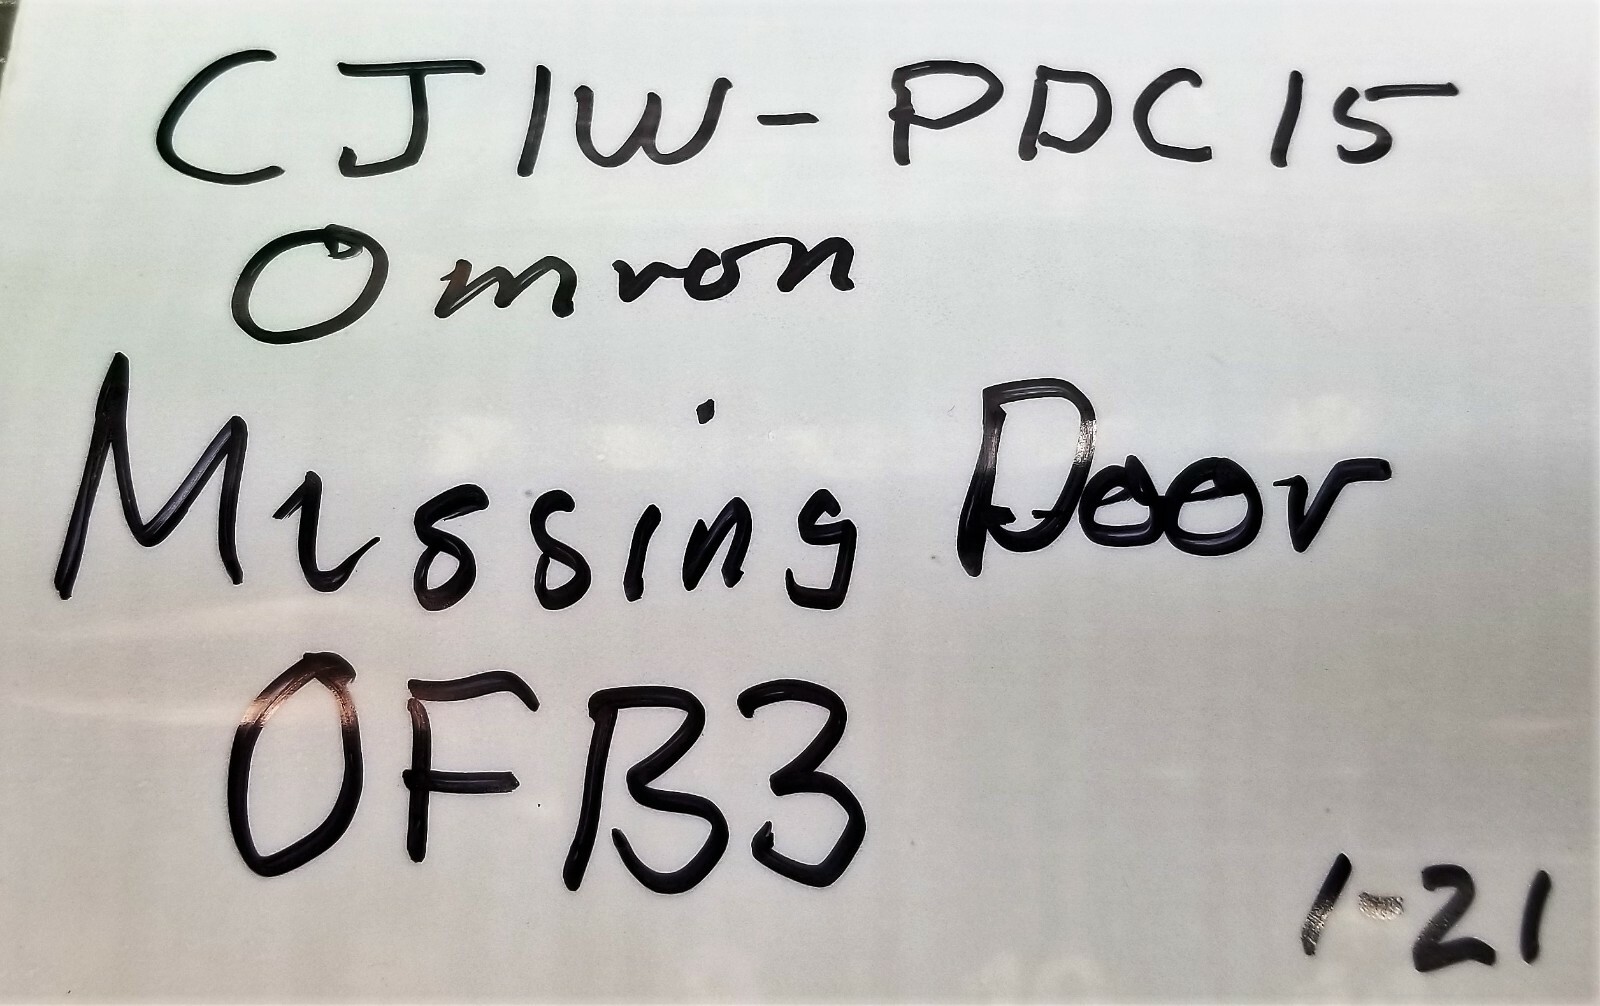 CJ1W-PDC15
Omron
Missing Door
OFB3
1-21